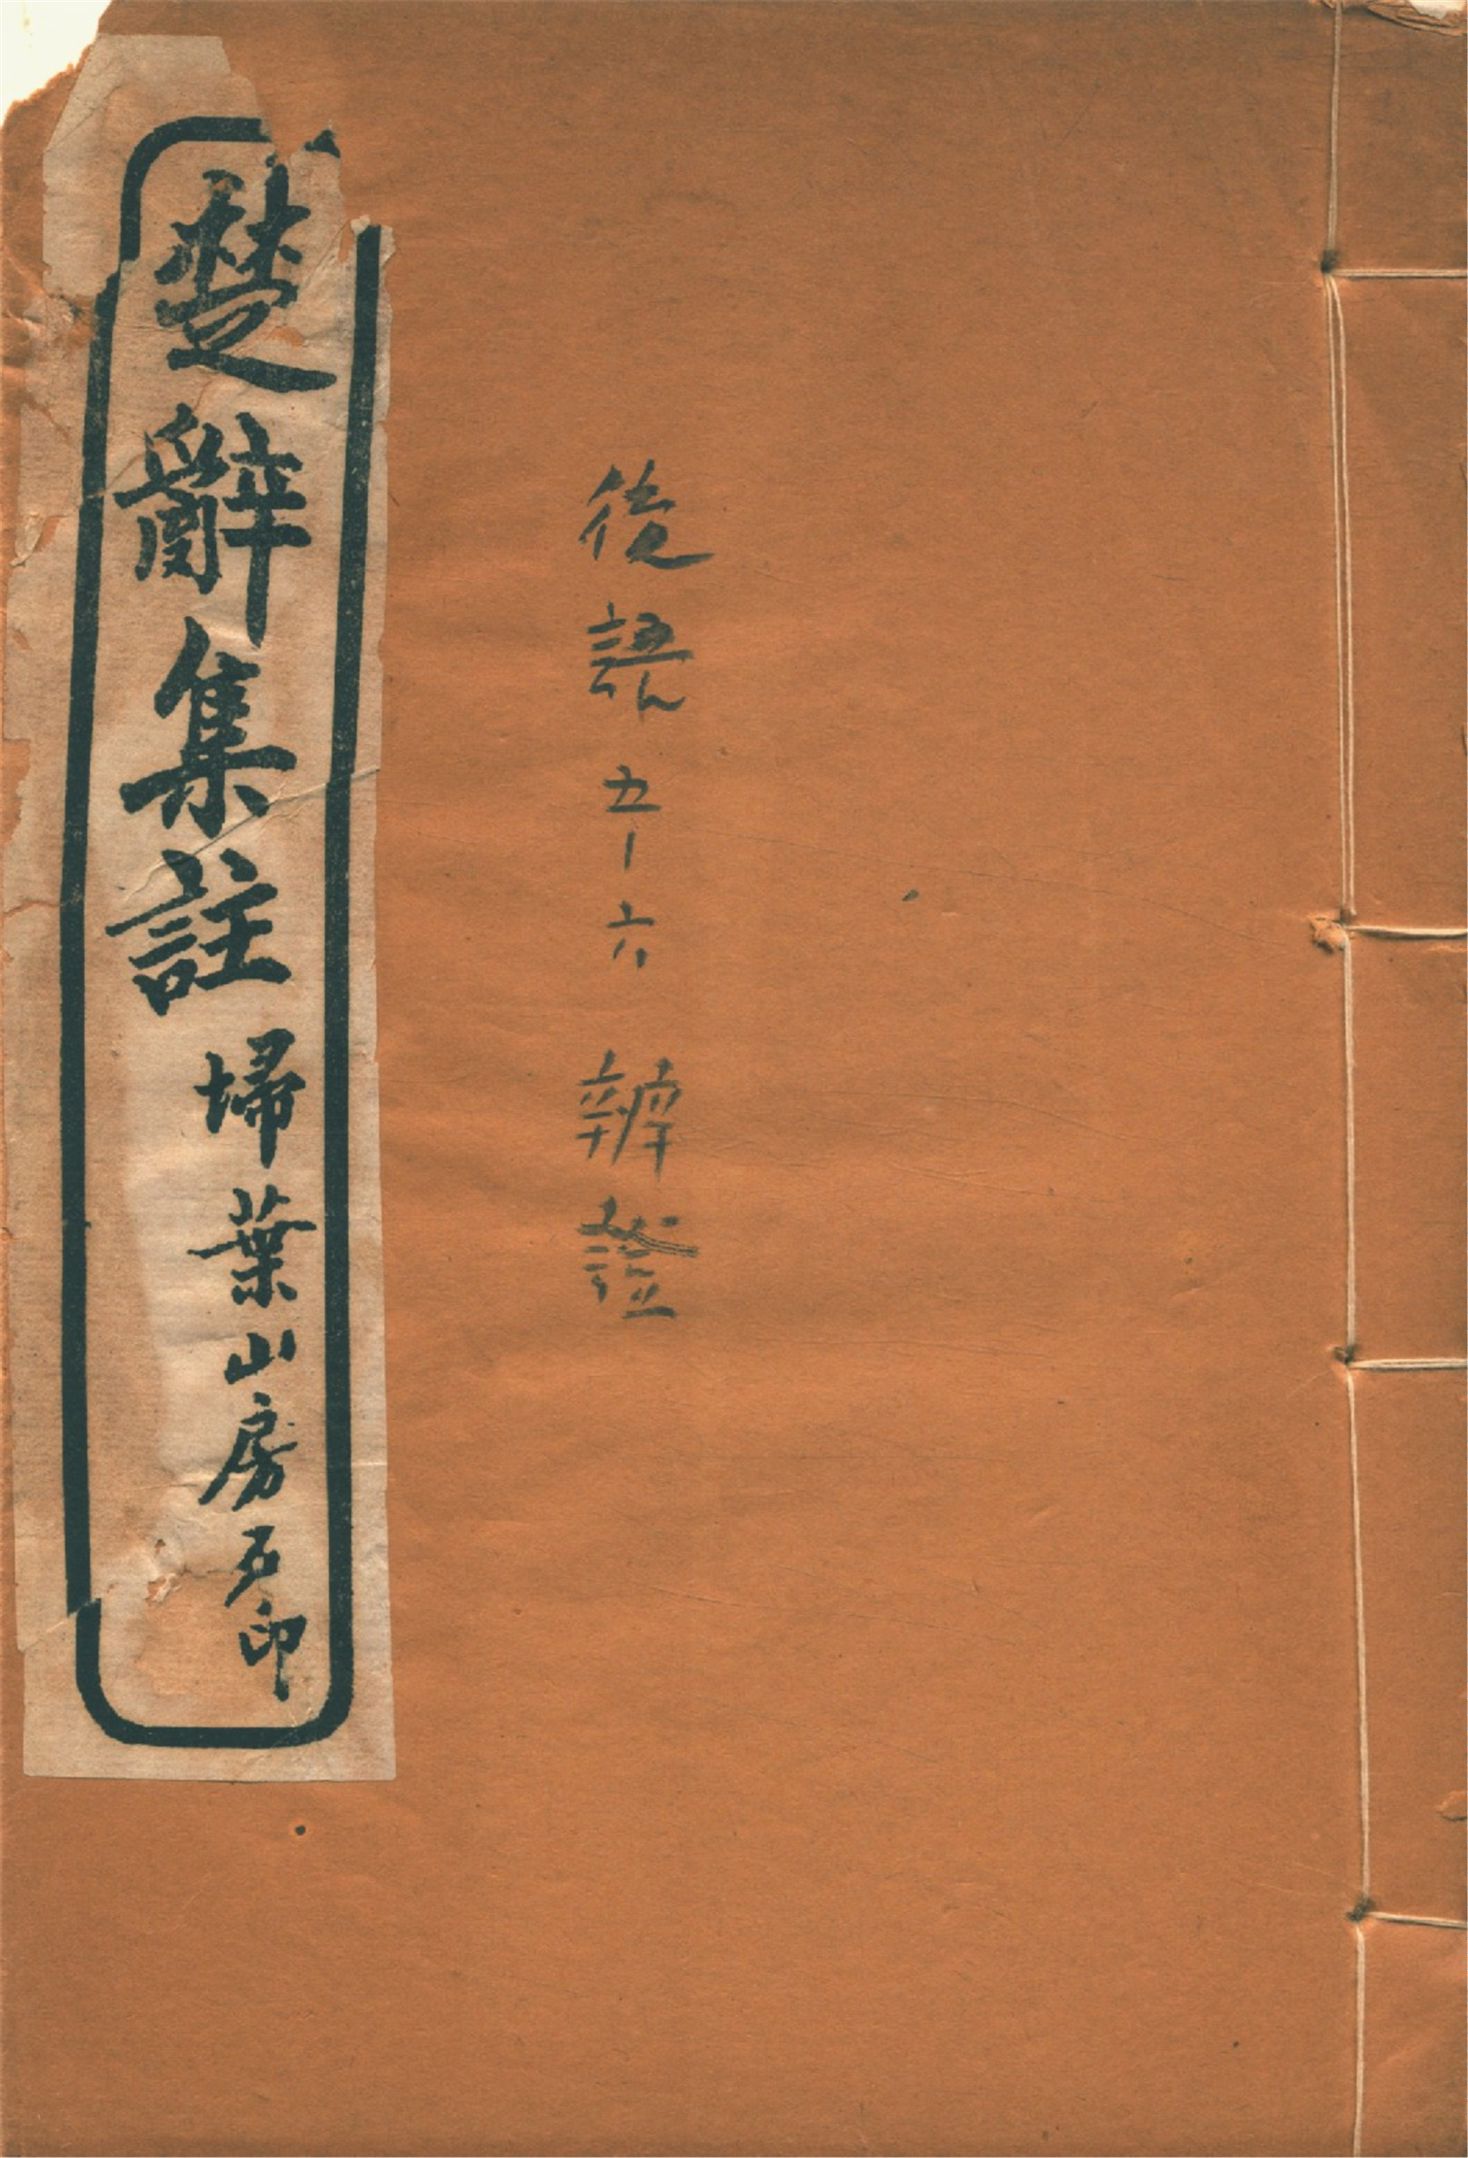 後語五-六 辨證
楚辭集註 埽葉山房石印